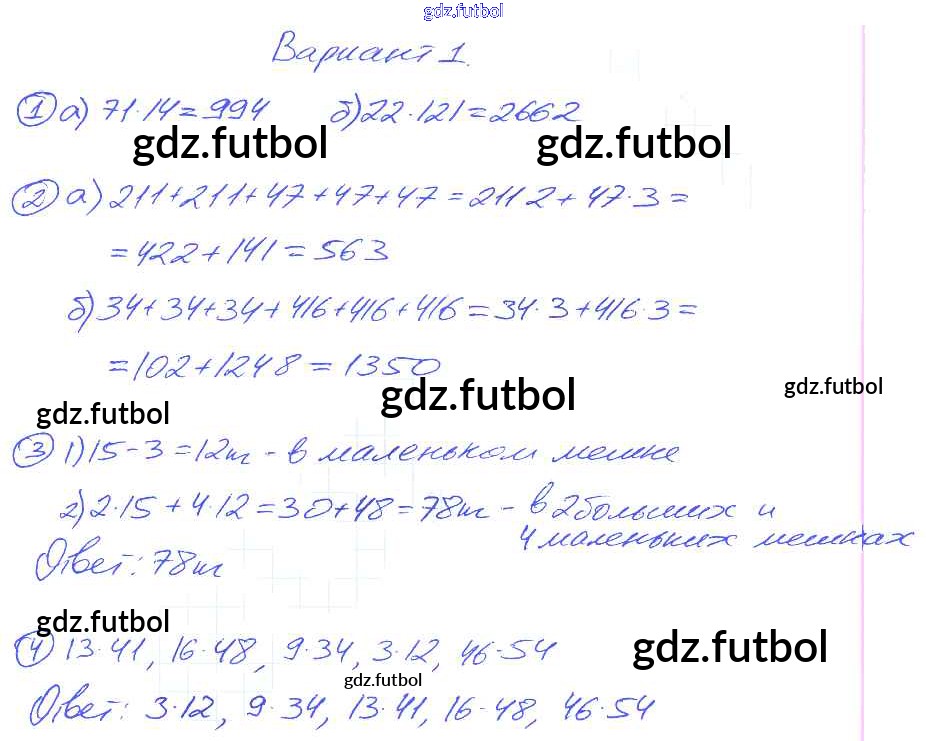 gdz.futbol
Вариант 1.
① а) 71·14=994 б) 22·121=2662
gdz.futbol gdz.futbol
② а) 211+211+47+47+47=211 2+47·3=
=422+141=563
б) 34+34+34+416+416+416=34·3+416·3=
=102+1248=1350
gdz.futbol gdz.futbol gdz.futbol
③ 1) 15-3=12т - в маленьком мешке
2) 2·15+4·12=30+48=78т - в 2 больших и
4 маленьких мешках
Ответ: 78т
gdz.futbol
④ 13·41, 16·48, 9·34, 3·12, 46·54
gdz.futbol gdz.futbol
Ответ: 3·12, 9·34, 13·41, 16·48, 46·54